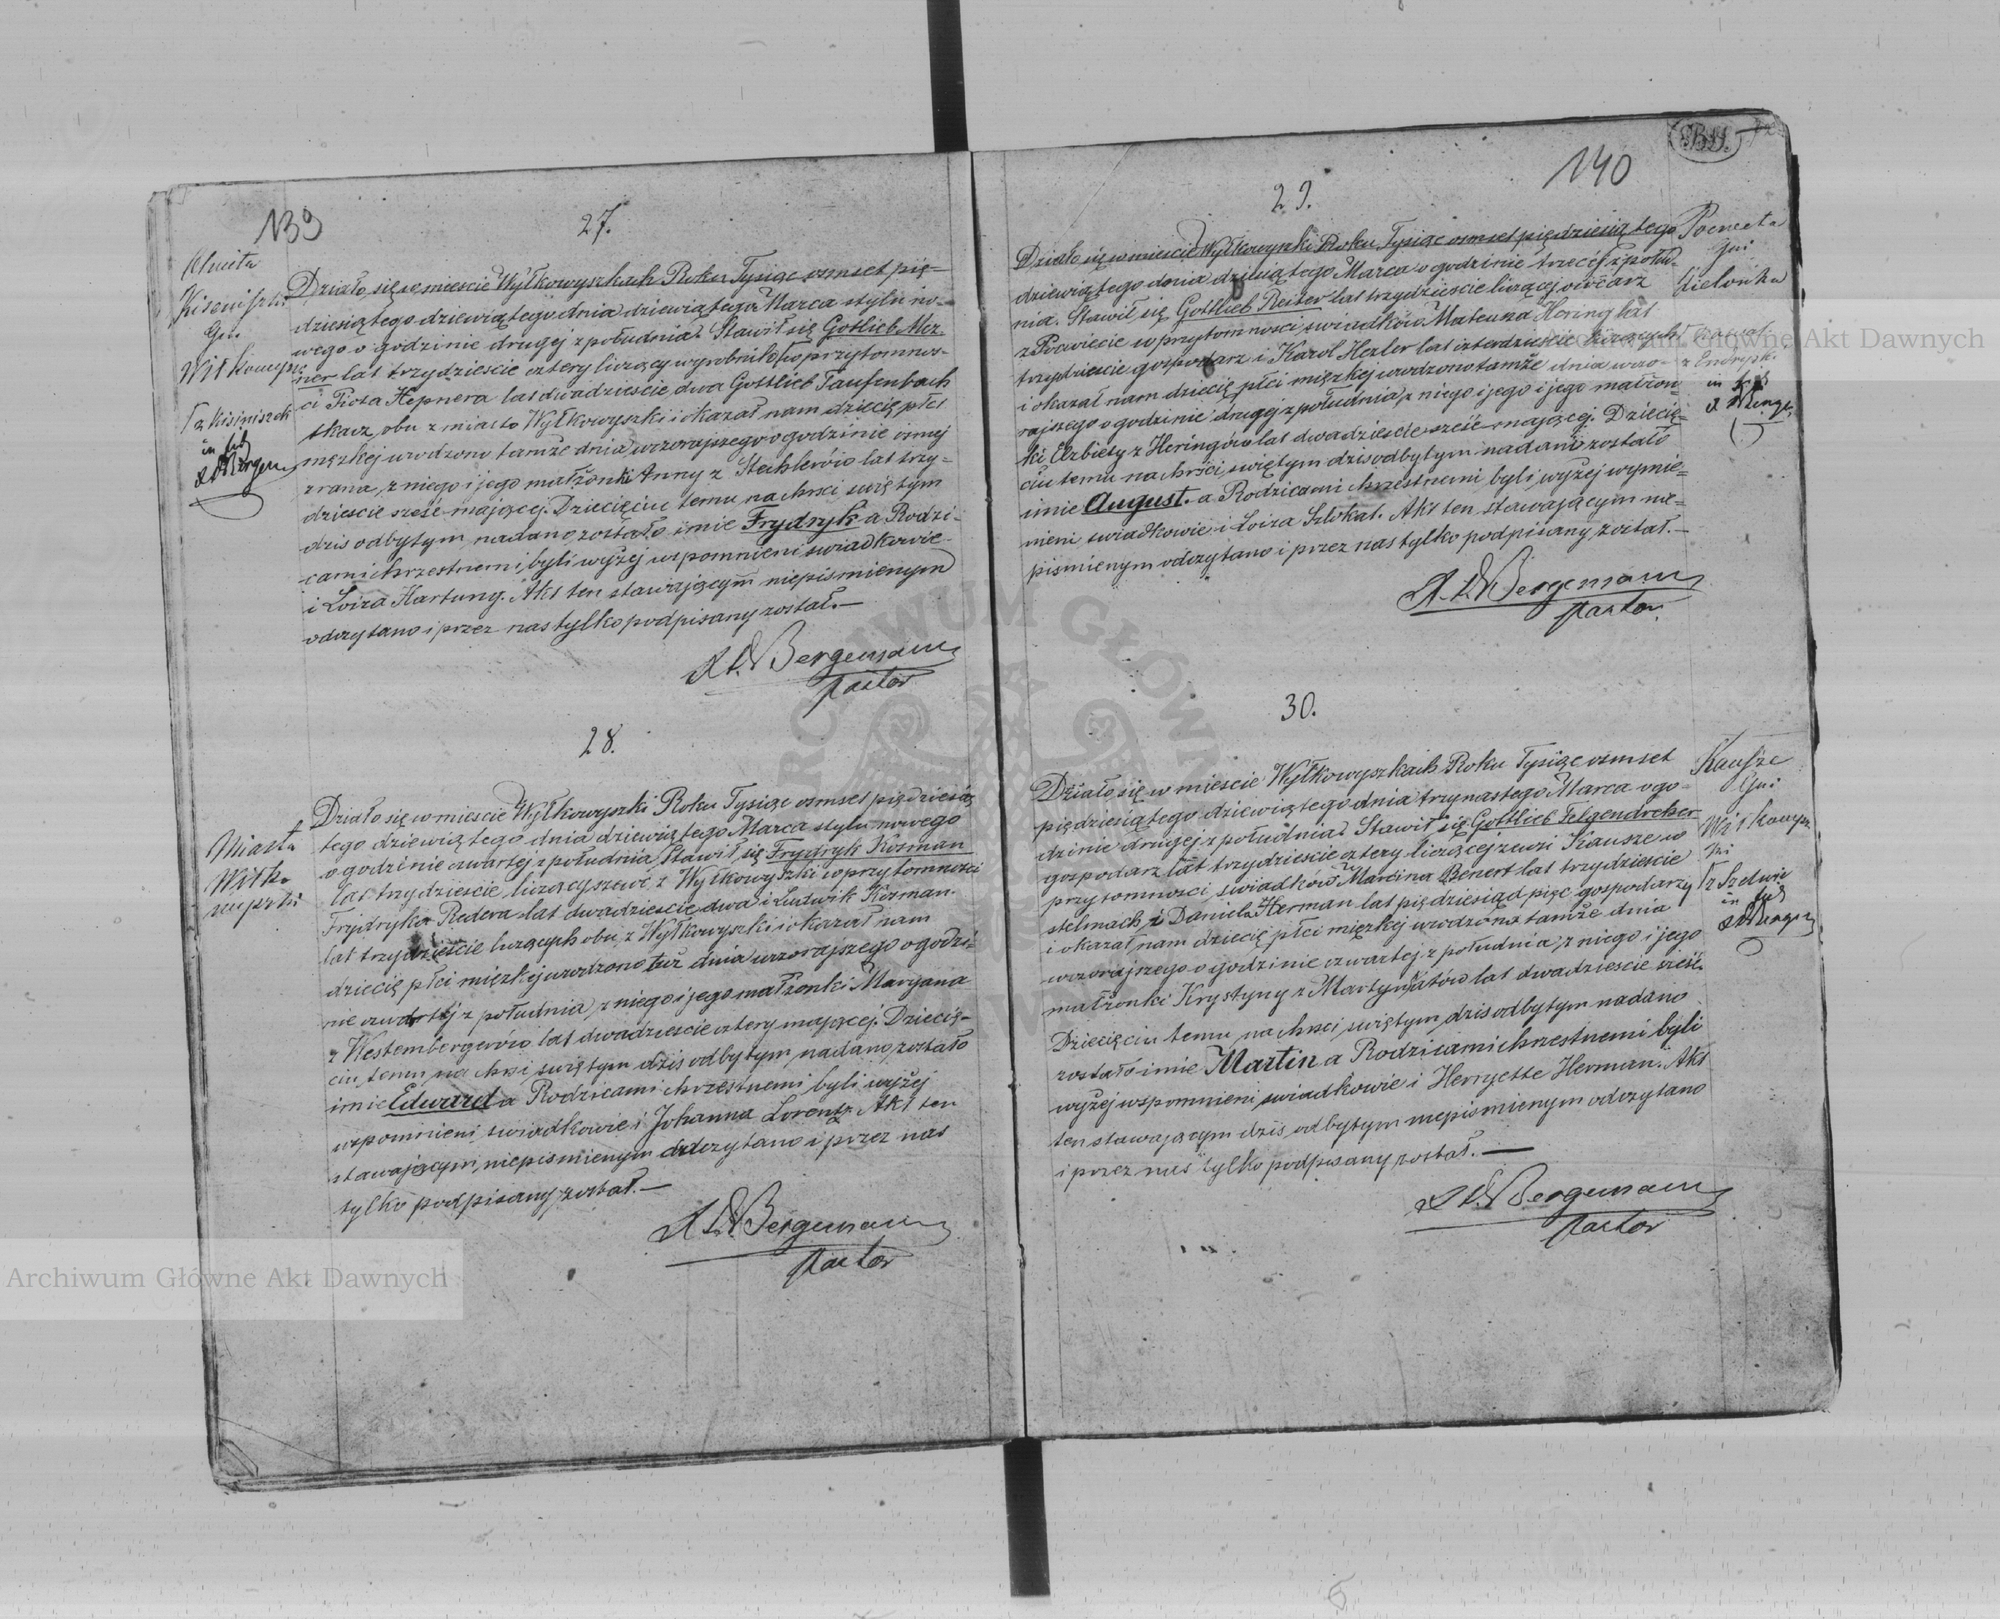 139
27.
Działo się w mieście Wyłkowyszkach Roku Tysiąc osmset pię-
dziesiątego dziewiątego dnia dziewiątego Marca stylu no-
wego o godzinie drugiej z południa. Stawił się Gottlieb Mer-
ner lat trzydzieście cztery liczący wyrobnik w przytomnoś-
ci Piotra Hepnera lat dwadzieścia dwa Gottlieb Taufenbach
tkacz, obu z miasto Wyłkowyszki i okazał nam dziecię płci
męzkiej urodzono tamże dnia wczorajszego o godzinie osmej
z rana, z niego i jego małżonki Anny z Stechlerów lat trzy-
dzieście sześć mającej. Dziecięciu temu na chrzci świętym
dzis odbytym nadano zostało imie Frydryk a Rodzi-
cami chrzestnemi byli wyżej wspomnieni swiadkowie
i Loiza Hartung. Akt ten stawającym niepismienym
odczytano i przez nas tylko podpisany został.—
Bergemann
Pastor
28.
Miasta
Działo się w mieście Wyłkowyszki Roku Tysiąc osmset pięćdziesią
tego dziewiątego dnia dziewiątego Marca stylu nowego
o godzinie czwartej z południa Stawił się Frydryk Kosman
lat trzydzieście liczący szewc z Wyłkowyszki w przytomności
Frydryka Redera lat dwadzieścia dwa i Ludwik Kosman
lat trzydzieście liczących obu z Wyłkowyszki i okazał nam
dziecię płci męzkiej urodzono tuż dnia wczorajszego o godzi-
nie czwartej z południa, z niego i jego małżonki Maryana
z Westembergerów lat dwadzieście cztery mającej. Dziecię-
ciu temu na chrzci świętym dzis odbytym, nadano zostało
imie Edward a Rodzicami chrzestnemi byli wyżej
wspomnieni swiadkowie i Johanna Lorentz. Akt ten
stawającym, niepismienym odczytano i przez nas
tylko podpisany został.—
Bergemann
Pastor
140
29.
Działo się w mieście Wyłkowyszki Roku Tysiąc osmset pięćdziesiątego
dziewiątego dnia dziesiątego Marca o godzinie trzeciej z połud-
nia. Stawił się Gottlieb Reiter lat trzydzieście liczącej owczarz
z Powiecie w przytomności swiadków Mateusza Hering lat
trzydzieście gospodarz i Karol Hexler lat czterdzieście liczących
i okazał nam dziecię płci męzkej urodzono tamże dnia wczo-
rajszego o godzinie drugej z południa, z niego i jego małżon-
ki Elzbiety z Heringów lat dwadzieście sześć mającej. Dziecię-
ciu temu na chrzci świętym dzis odbytym nadano zostało
imie August. a Rodzicami chrzestnemi byli wyżej wymie-
nieni swiadkowie i Loiza Szlokat. Akt ten stawającym nie-
piśmienym odczytano i przez nas tylko podpisany został.—
Bergemann
Pastor.
30.
Kausze
Działo się w mieście Wyłkowyszkach Roku Tysiąc osmset
pięćdziesiątego dziewiątego dnia trzynastego Marca o go-
dzinie drugej z południa Stawił się Gottlieb Felgendreher
gospodarz lat trzydzieście cztery liczącej z wsi Kausze w
przytomności swiadków Marcina Benert lat trzydzieście
stelmach i Daniel Herman lat pięćdziesiąd pięć gospodarzy
i okazał nam dziecię płci męzkej urodzono tamże dnia
wczorajszego o godzinie czwartej z południa, z niego i jego
małżonki Krystyny z Martynatów lat dwadzieście sześć.
Dziecięciu temu, na chrzci świętym dzis odbytym nadano
zostało imie Martin a Rodzicami chrzestnemi byli
wyżej wspomnieni swiadkowie i Henryette Herman. Akt
ten stawającym dzis odbytym niepismienym odczytano
i przez nas tylko podpisany został.—
Bergemann
Pastor
Archiwum Główne Akt Dawnych